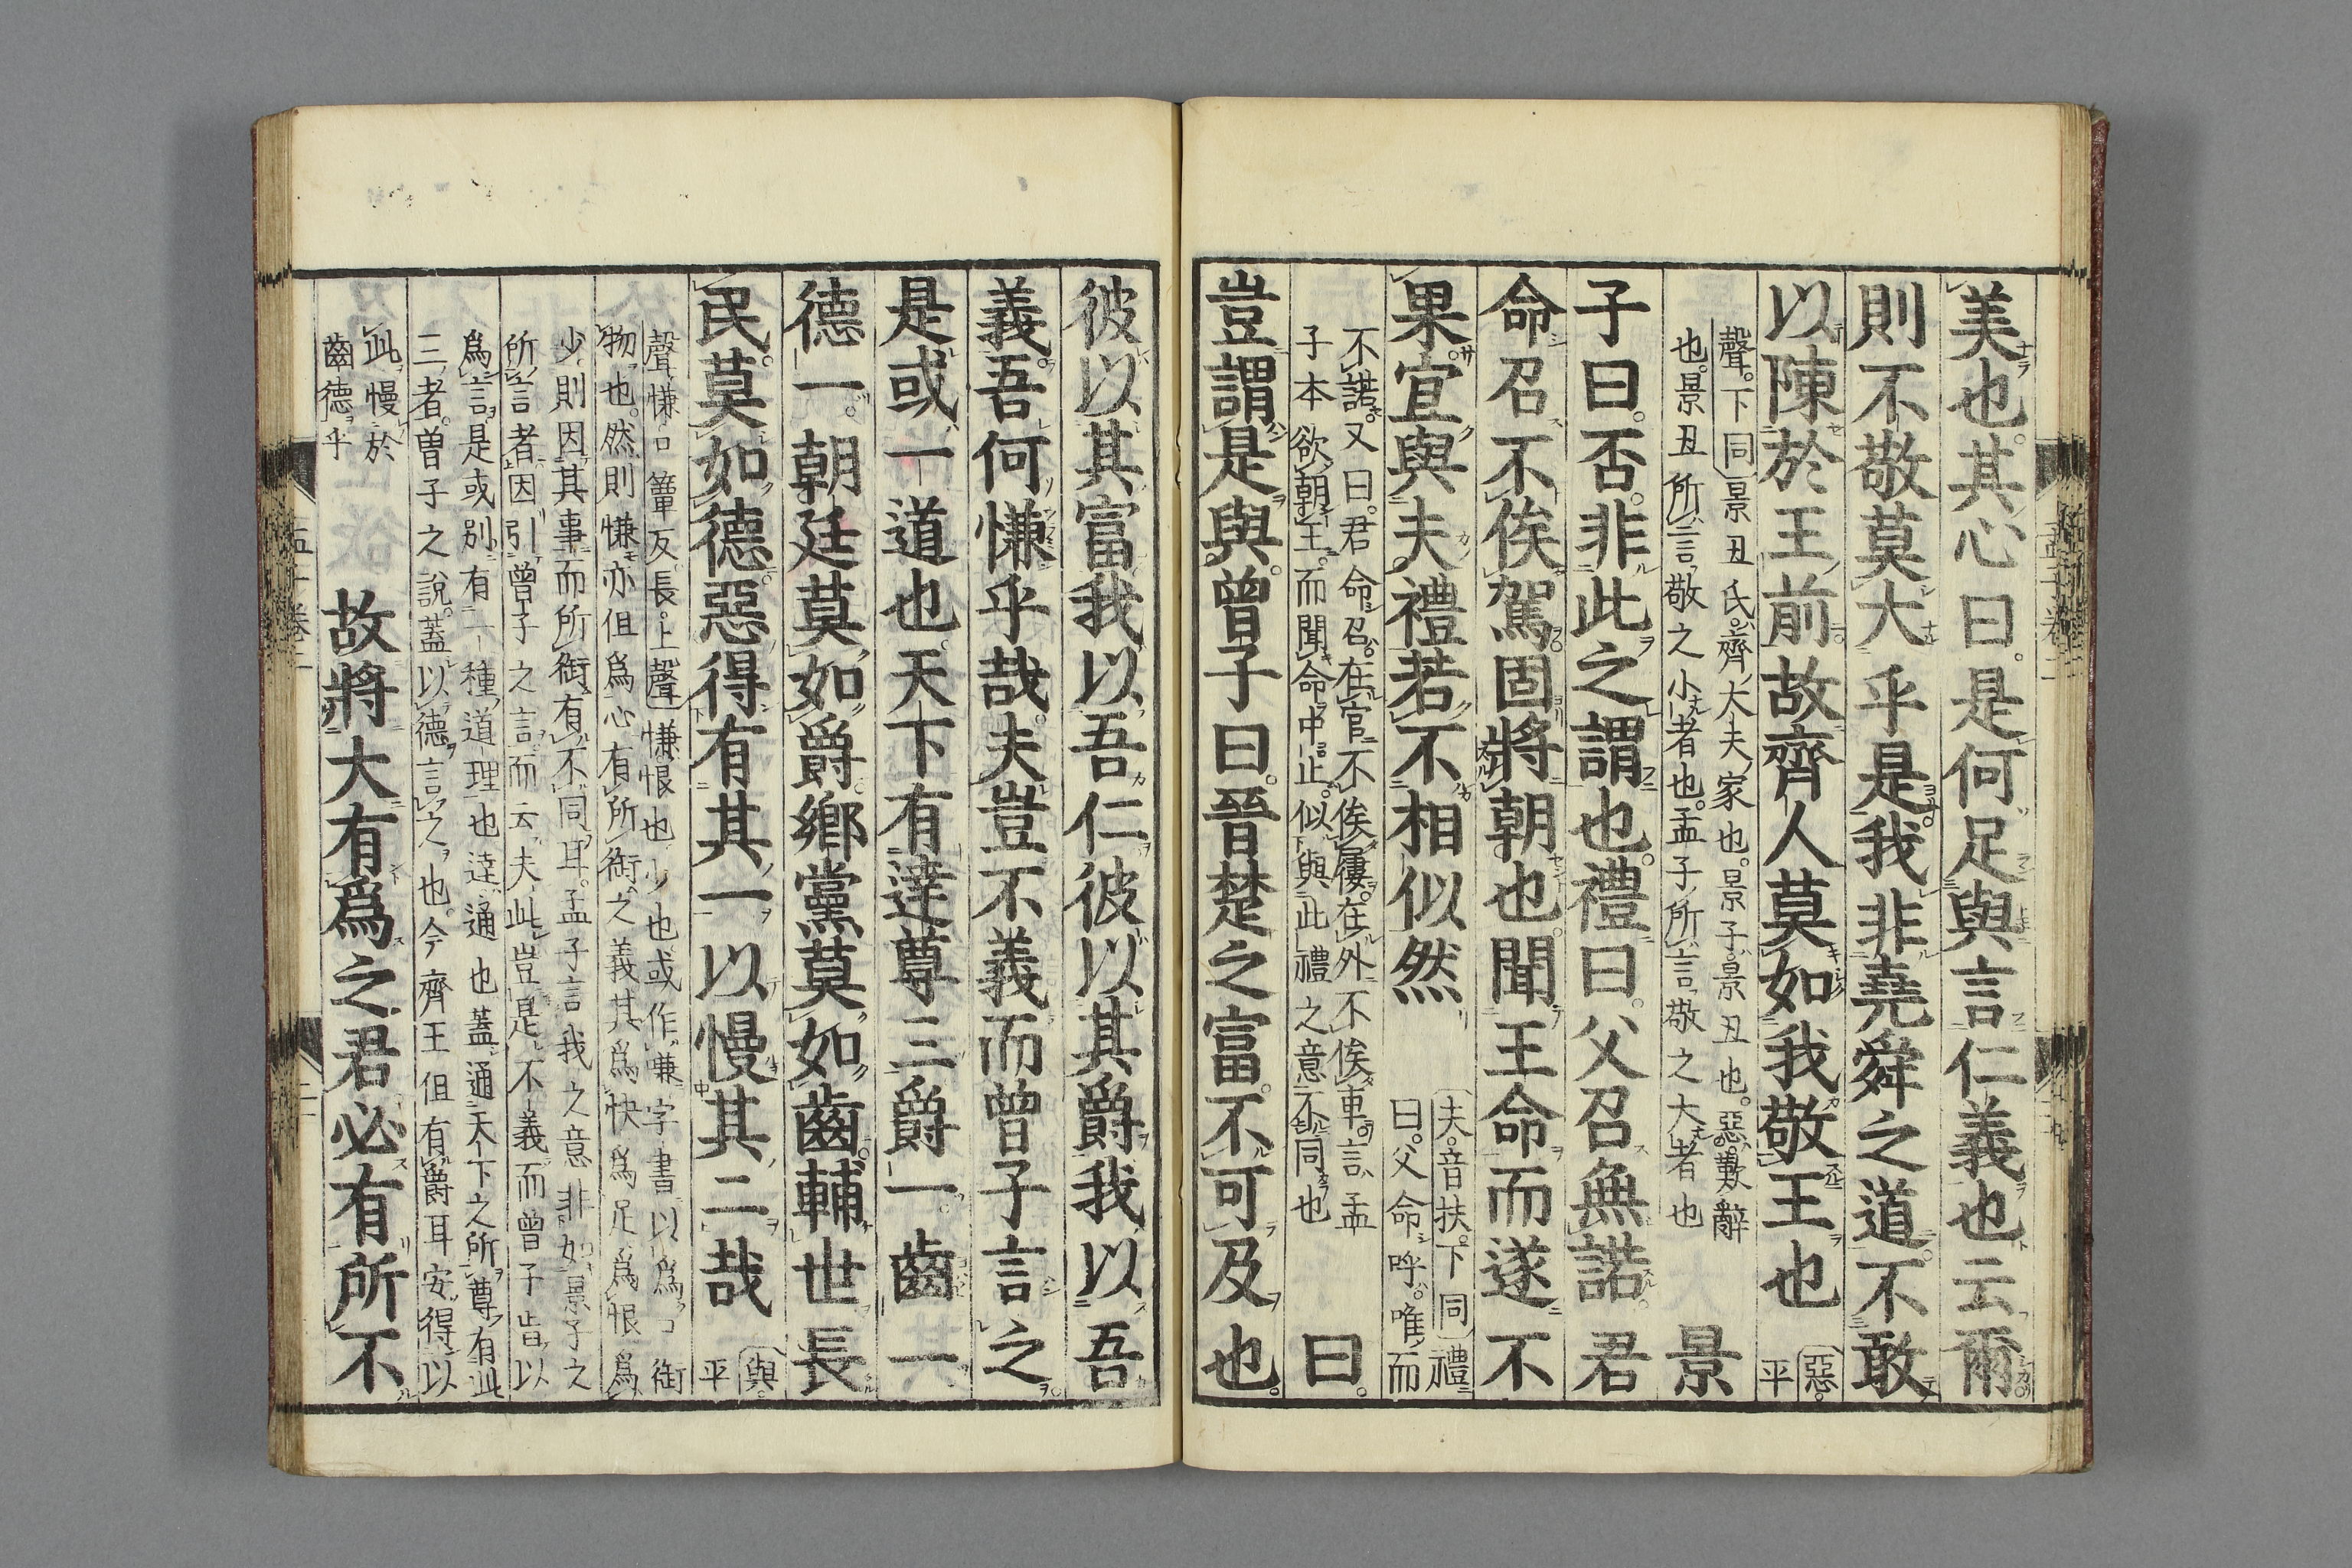 美也其心曰是何足與言仁義也云爾
則不敬莫大乎是我非堯舜之道不敢
以陳於王前故齊人莫如我敬王也
惡
平
聲下同景丑氏齊大夫家也景子景丑也惡歎辭
也景丑所言敬之小者也孟子所言敬之大者也
景
子曰否非此之謂也禮曰父召無諾君
命召不俟駕固將朝也聞王命而遂不
果宜與夫禮若不相似然
夫音扶下同禮
曰父命呼唯而
不諾又曰君命召在官不俟屨在外不俟車言孟
子本欲朝王而聞命中止似與此禮之意不同也
曰
豈謂是與曾子曰晉楚之富不可及也
彼以其富我以吾仁彼以其爵我以吾
義吾何慊乎哉夫豈不義而曾子言之
是或一道也天下有達尊三爵一齒一
德一朝廷莫如爵鄉黨莫如齒輔世長
民莫如德惡得有其一以慢其二哉
與
平
聲慊口簟反長上聲慊恨也少也或作嗛字書以爲口銜
物也然則慊亦但爲心有所銜之義其爲快爲足爲恨爲
少則因其事而所銜有不同耳孟子言我之意非如景子之
所言者因引曾子之言而云夫此豈是不義而曾子肯以
爲言是或別有一種道理也達通也蓋通天下之所尊有此
三者曾子之說蓋以德言之也今齊王但有爵耳安得以
此慢於
齒德乎
故將大有爲之君必有所不